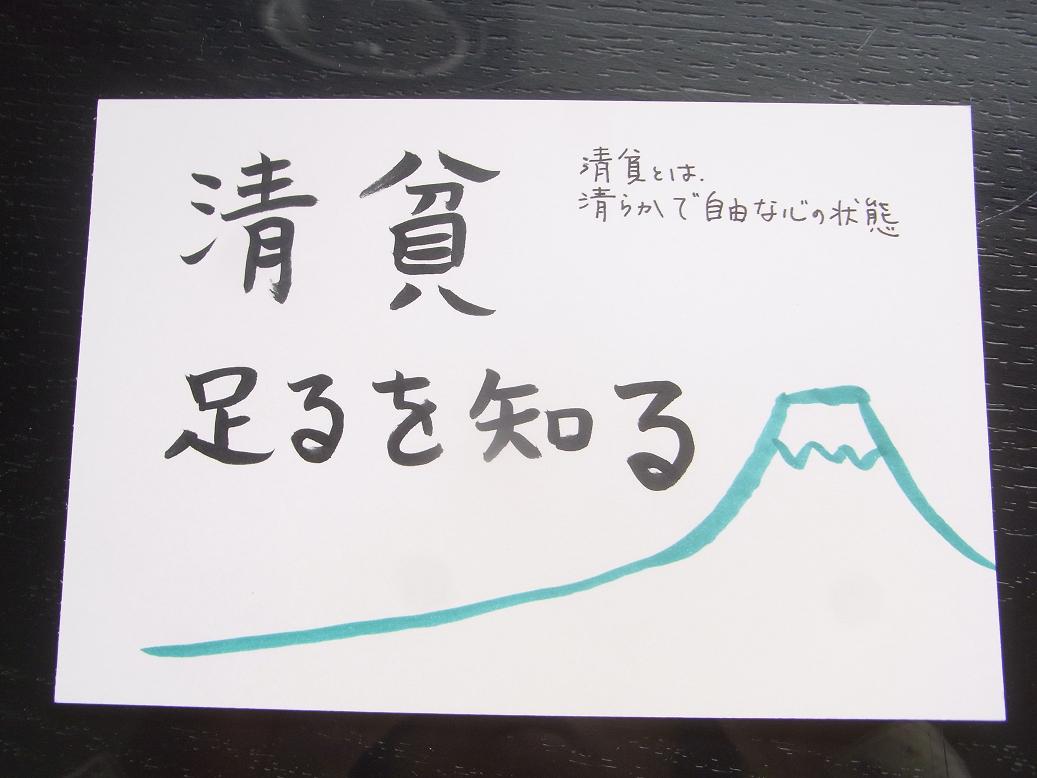 清貧
清貧とは、
清らかで自由な心の状態
足るを知る